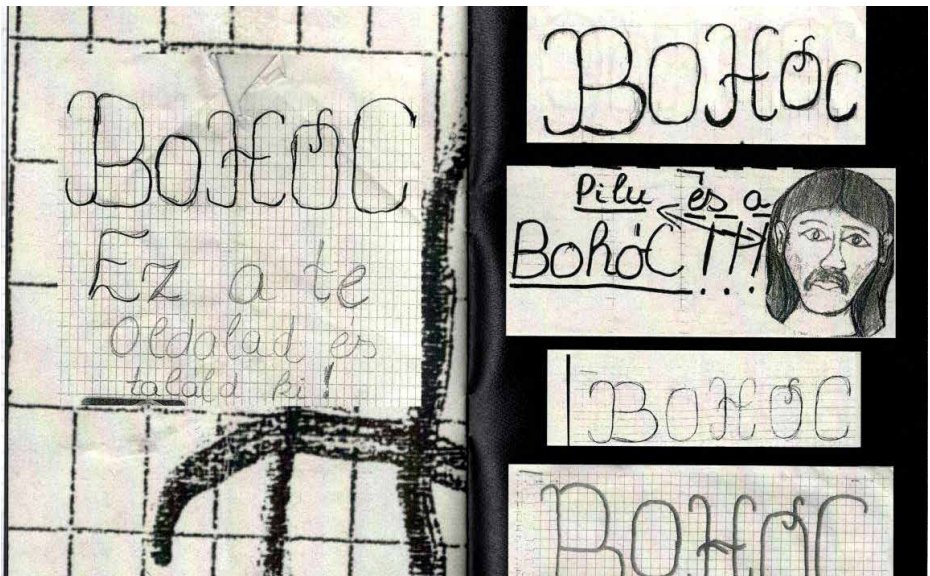 BOHÓC
Ez a te
Oldalad és
találd ki!
BOHÓC
Pilu és a
BohóC !!!
BOHÓC
BOHÓC